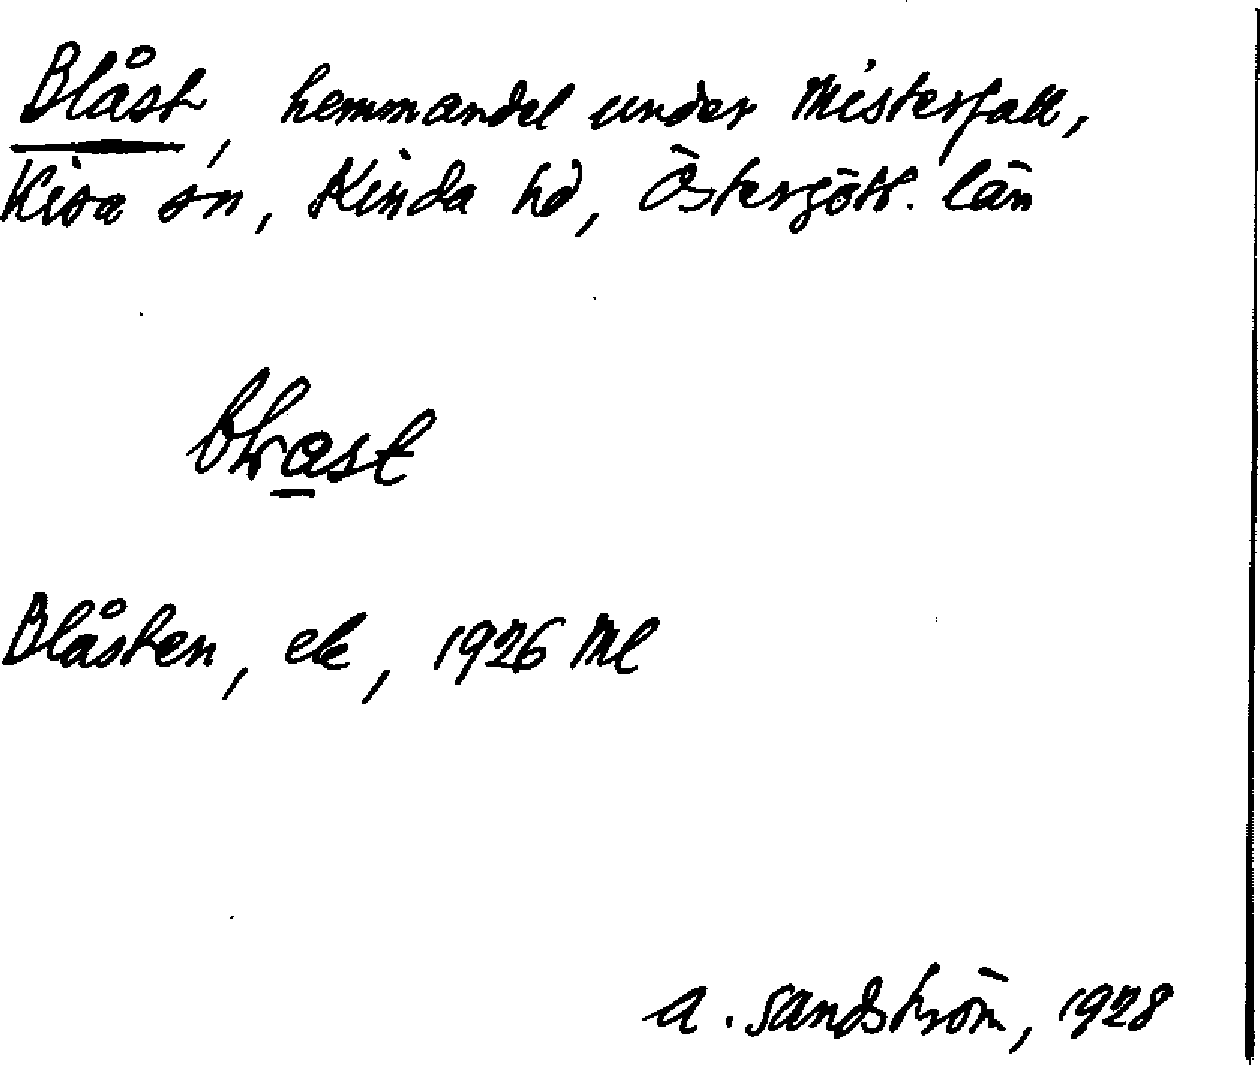 Blåst, hemmandel under Misterfall,
Kisa sn, Kinda hd, Östergötl. län
Blåsten, ek, 1926 Ml
A. Sandström, 1928